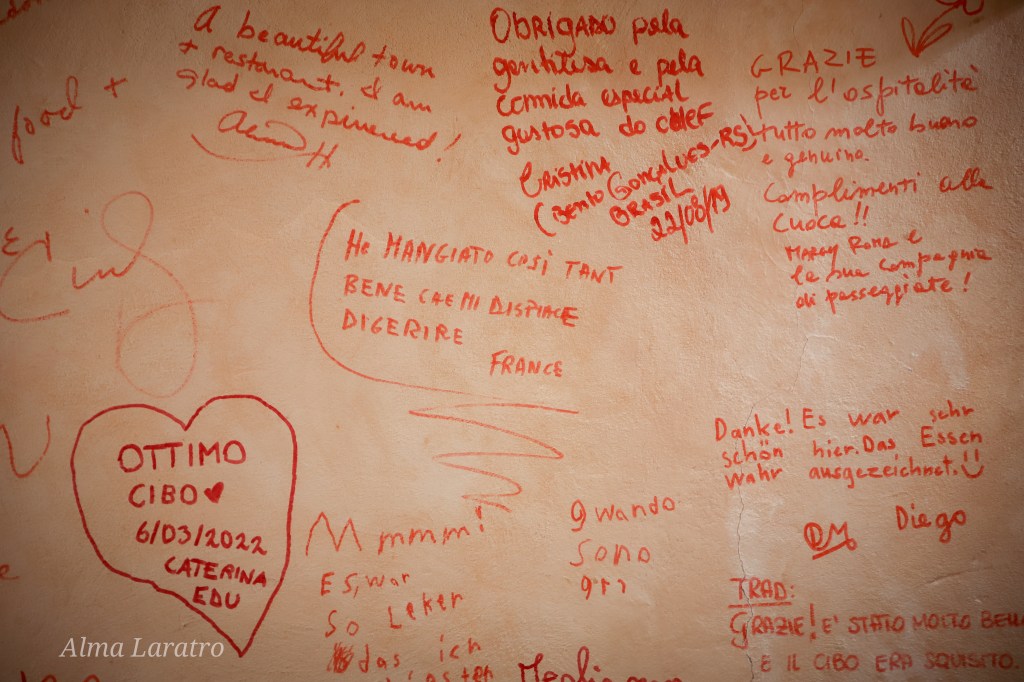 food +
A beautiful town
+ restorant. I am
glad I expineread!
OBRIGADO pela
gentilisa e pela
comida especial
gustosa do cHEF
CRISTINA
(BENTO GONÇALVES-RS)
BRASIL
22/08/19
GRAZIE
per l'ospitalità
tutto molto buono
e genuino.
Complimenti alla
cuoca!!
MARGY ROMA e
la sua compagnia
di passeggiate!
HE MANGIATO COSÌ TANT
BENE CHE MI DISPIACE
DIGERIRE
FRANCE
OTTIMO
CIBO
6/03/2022
CATERINA
EDU
Mmmmm!
ES, war
So Leker
das ich
gwando
sono
Danke! Es war sehr
schön hier. Das Essen
wahr ausgezeichnet.
DM Diego
TRAD:
GRAZIE! E' STATO MOLTO BELL
E IL CIBO ERA SQUISITO.
Alma Laratro